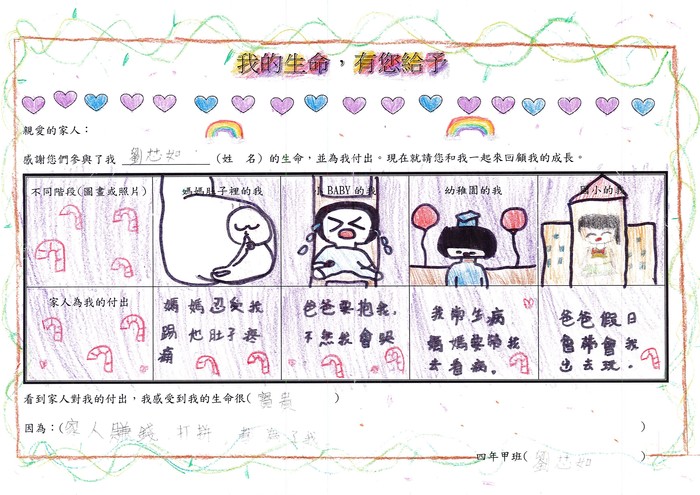 我的生命，有您給予
親愛的家人：
感謝您們參與了我 劉芯如 (姓 名) 的生命，並為我付出。現在就請您和我一起來回顧我的成長。
不同階段(圖畫或照片)
媽媽肚子裡的我
BABY的我
幼稚園的我
國小的我
家人為我的付出
媽媽忍受我
踢他肚子疼
痛
爸爸要抱我，
不然我會哭
我常生病
媽媽要帶我
去看病。
爸爸假日
會帶會我
出去玩。
看到家人對我的付出，我感受到我的生命很( 寶貴 )
因為：(家人賺錢 打拼 都為了我 )
四年甲班( 劉芯如 )